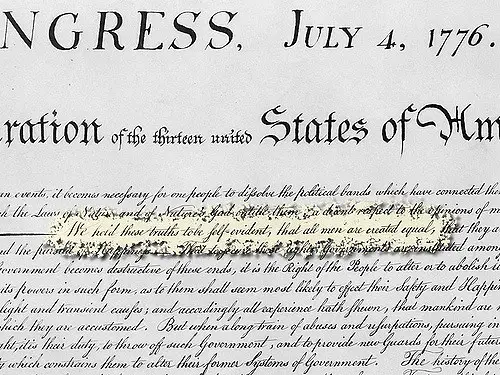 NGRESS, JULY 4, 1776.
ration of the thirteen united States of Am
an events, it becomes necessary for one people to dissolve the political bands which have connected the
the Laws of and of God the a decent respect to the opinions of m
We hold these truths to be self-evident, that all men are created equal, that they a
and the pursuit of among
Government becomes destructive of these ends, it is the Right of the People to alter or to abolish
its powers in such form, as to them shall seem most likely to effect their Safety and Happin
light and transient causes; and accordingly all experience hath shewn, that mankind are m
which they are accustomed. But when a long train of abuses and usurpations, pursuing in
ght, it is their duty, to throw off such Government, and to provide new Guards for their futur
ty which constrains them to alter their former Systems of Government. The history of the